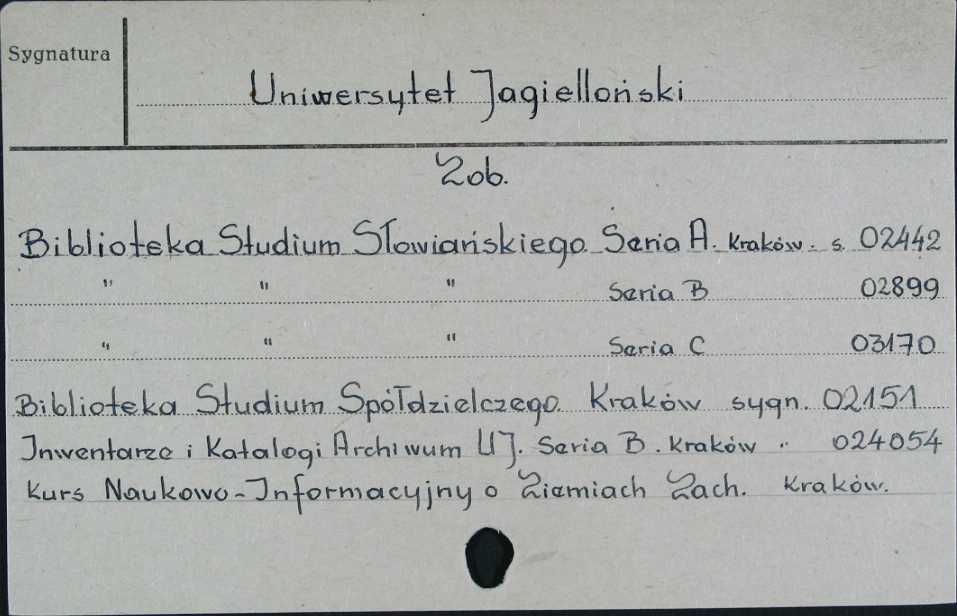 Sygnatura
Uniwersytet Jagielloński
Zob.
Biblioteka Studium Słowiańskiego Seria A. Kraków. s. 02442
" " " Seria B 02899
" " " Seria C 03170
Biblioteka Studium Spółdzielczego. Kraków sygn. 02151
Inwentarze i Katalogi Archiwum UJ. Seria B. Kraków " 024054
Kurs Naukowo-Informacyjny o Ziemiach Zach. Kraków.